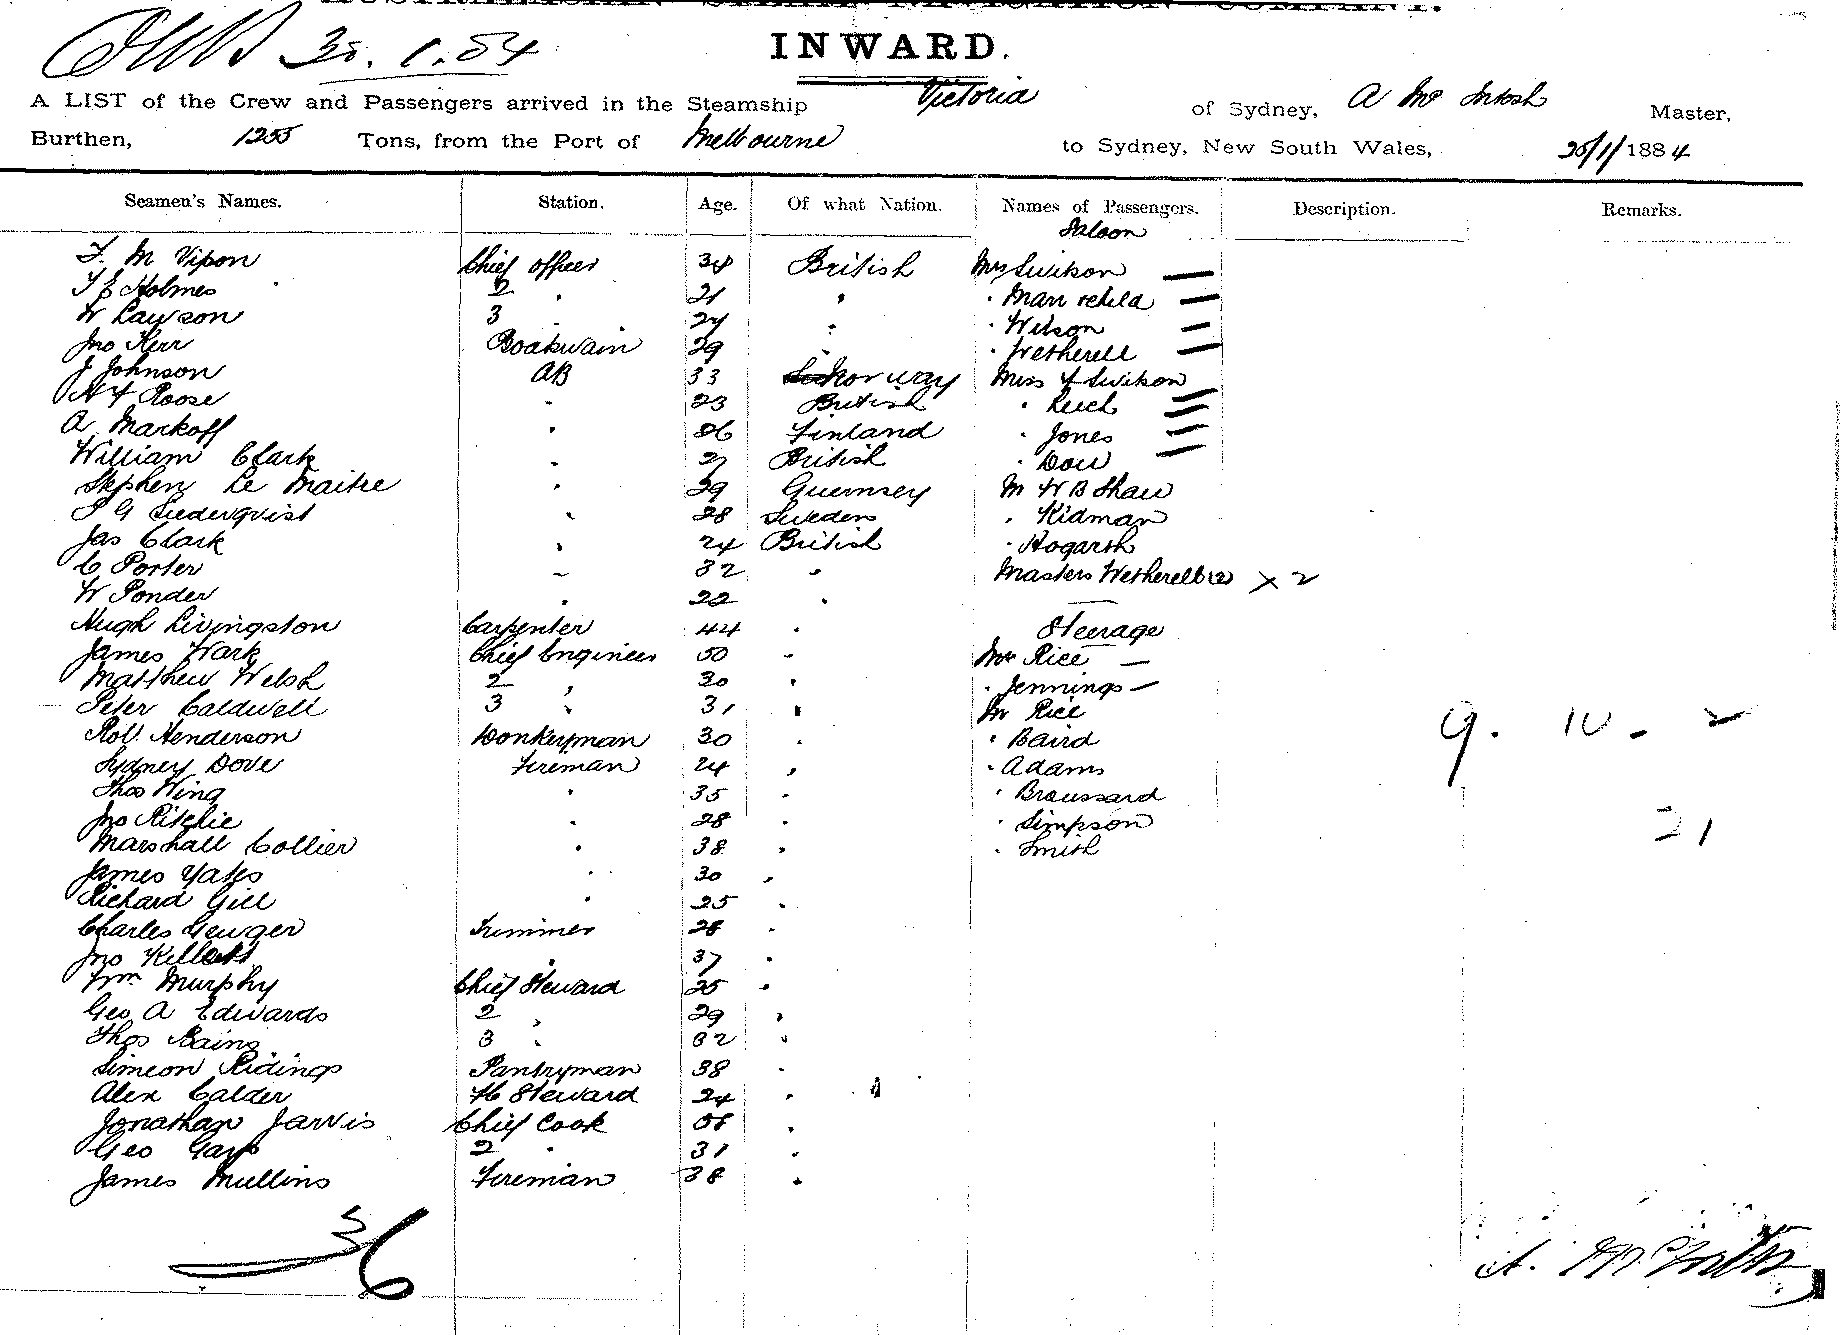 INWARD.
A LIST of the Crew and Passengers arrived in the Steamship Victoria of Sydney, A McIntosh Master,
Burthen, 1255 Tons, from the Port of Melbourne to Sydney, New South Wales, 25/1/1884
Seamen's Names. Station. Age. Of what Nation. Names of Passengers. Description. Remarks.
Saloon
F. M Vipon Chief officer 34 British Mrs
T E Holmes 2 " 21 "
W Lawson 3 " 24 " " Wilson —
Jno Kerr Boatswain 29 " " Wetherell —
J Johnson AB 33 Norway Miss
H F Roose " 23 British " Leech
A Markoff " Finland " Jones —
William Clark " 27 British " Dow —
Stephen Le Maitre " 29 Guernsey Mr W B Shaw
28 Sweden " Kidman
Jas Clark " 24 British " Hogarth
C Porter " 32 " Masters Wetherell (2) x 2
W Ponder " 22 "
Hugh Livingston Carpenter 44 " Steerage
James Wark Chief Engineer 50 " Mrs Rice —
Matthew Welsh 2 " 30 " " Jennings —
Peter Caldwell 3 " 31 " Mr Rice
Robt Henderson Donkeyman 30 " " Baird
Sydney Dove Fireman 24 " " Adams
Thos Wing " 35 " " Broussard
Jno Ritchie " 28 " " Simpson
Marshall Collier " 38 " " Smith
James Yates " 30 "
Richard Gill " 25 "
Charles Trimmer 28 "
Jno " 37 "
Wm Murphy Chief Steward 25 "
Geo A Edwards 2 " 29 "
Thos Bains 3 " 32 "
Simeon Ridings Pantryman 38 "
Alex Calder Steward 24 "
Jonathan Jarvis Chief Cook "
Geo Gay 2 " 31 "
James Mullins Fireman 38 "
9. 10 - 2
21
36
A. McIntosh